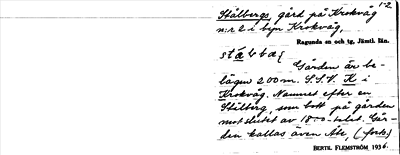 1-2
Stålbergs, gård på Krokvåg
n:r 2 i byn Krokvåg,
Ragunda sn och tg, Jämtl. län.
Gården är be-
lägen 200 m. S.S.V. K i
Krokvåg. Namnet efter en
Stålberg, som bott på gården
mot slutet av 1800-talet. Går-
den kallas även Åte, (fork.)
BERTIL FLEMSTRÖM 1936.